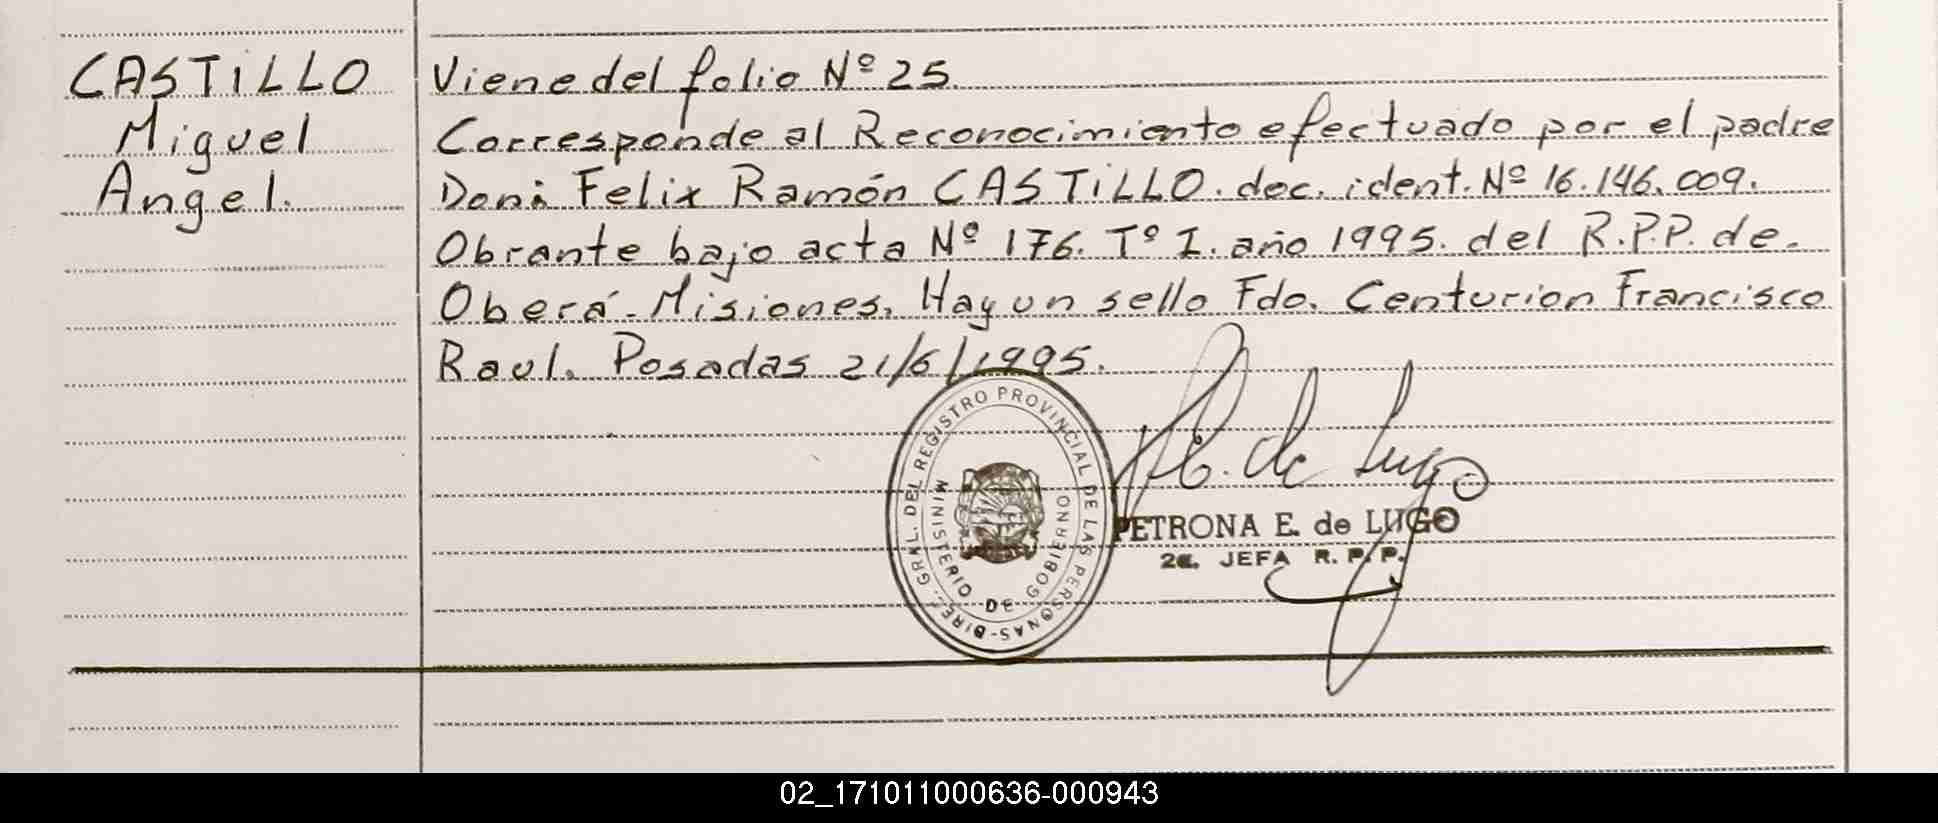 CASTILLO
Miguel
Angel.
Viene del folio Nº 25.
Corresponde al Reconocimiento efectuado por el padre
Don: Felix Ramón CASTILLO. doc. ident. Nº 16.146.009.
Obrante bajo acta Nº 176. Tº I. año 1995. del R.P.P. de.
Oberá-Misiones. Hay un sello Fdo. Centurion Francisco
Raul. Posadas 21/6/1995.
DIREC. GRAL. DEL REGISTRO PROVINCIAL DE LAS PERSONAS-
MINISTERIO DE GOBIERNO
de Lugo
PETRONA E. de LUGO
2a. JEFA R. P. P.
02_171011000636-000943